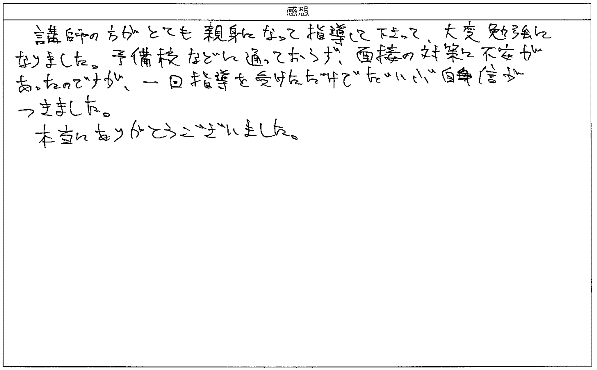 感想
講師の方がとても親身になって指導して下さって、大変勉強に
なりました。予備校などに通っておらず、面接の対策に不安が
あったのですが、一回指導を受けただけでだいぶ自信が
つきました。
本当にありがとうございました。